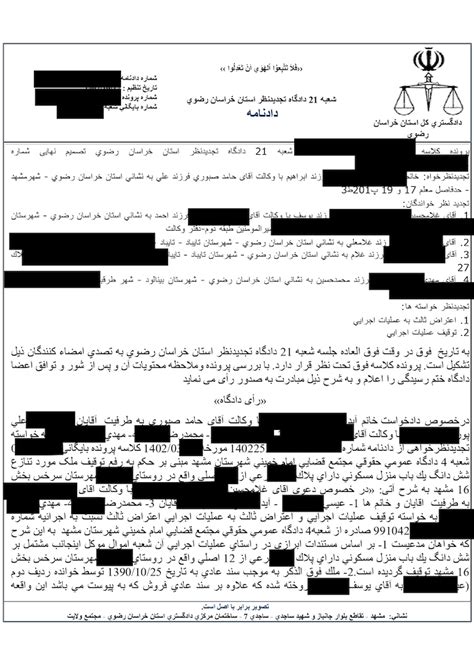 «فَلَا تَتَّبِعُوا الْهَوَىٰ أَنْ تَعْدِلُوا»
شماره دادنامه
تاریخ تنظیم :
شماره پرونده
شماره بایگانی شعبه
شعبه 21 دادگاه تجدیدنظر استان خراسان رضوی
دادنامه
دادگستری کل استان خراسان
رضوی
پرونده کلاسه شعبه 21 دادگاه تجدیدنظر استان خراسان رضوی تصمیم نهایی شماره
تجدیدنظرخواه: خانم فرزند ابراهیم با وکالت آقای حامد صبوری فرزند علی به نشانی استان خراسان رضوی - شهرمشهد
- حدفاصل معلم 17 و 19
تجدید نظر خواندگان:
1. آقای فرزند یوسف با وکالت آقای فرزند احمد به نشانی استان خراسان رضوی -
طبقه دوم-دفتر وکالت
2. آقای فرزند غلامعلی به نشانی استان خراسان رضوی - شهرستان تایباد - تایباد
3. آقای فرزند غلام به نشانی استان خراسان رضوی - شهرستان تایباد - پلاک
27
4. آقای مهدی فرزند محمدحسین به نشانی استان خراسان رضوی - شهرستان بینالود - شهر
تجدیدنظر خواسته ها:
1. اعتراض ثالث به عملیات اجرایی
2. توقیف عملیات اجرایی
به تاریخ فوق در وقت فوق العاده جلسه شعبه 21 دادگاه تجدیدنظر استان خراسان رضوی به تصدی امضاء کنندگان ذیل
تشکیل است. پرونده کلاسه فوق تحت نظر قرار دارد. با بررسی پرونده وملاحظه محتویات آن و پس از شور و توافق اعضا
دادگاه ختم رسیدگی را اعلام و به شرح ذیل مبادرت به صدور رای می نماید
«رای دادگاه»
درخصوص دادخواست خانم با وکالت آقای حامد صبوری به طرفیت آقایان علی
با وکالت آقای محمدرضا مهدی خواسته
تجدیدنظرخواهی از دادنامه شماره 140225 مورخه 1402/03 کلاسه پرونده بایگانی
شعبه 4 دادگاه عمومی حقوقی مجتمع قضایی امام خمینی شهرستان مشهد مبنی بر حکم به رفع توقیف ملک مورد تنازع
شش دانگ یک باب منزل مسکونی دارای پلاک فرعی از اصلی واقع در روستای شهرستان سرخس بخش
16 مشهد به شرح آتی: «در خصوص دعوی آقای با وکالت آقای
به طرفیت آقایان و خانم ها 1- عیسی 3- محمدرضا
به خواسته توقیف عملیات اجرایی و اعتراض ثالث به عملیات اجرایی اعتراض ثالث نسبت به اجرائیه شماره
991042 صادره از شعبه4 دادگاه عمومی حقوقی مجتمع قضایی امام خمینی شهرستان مشهد به این شرح
که خواهان مدعیست 1- بر اساس مستندات ابرازی در راستای عملیات اجرایی آن شعبه اموال موکل اینجانب مشتمل بر
شش دانگ یک باب منزل مسکونی دارای پلاک فرعی از 12 اصلی واقع در روستای شهرستان سرخس بخش
16 مشهد توقیف گردیده است.2- ملک فوق الذکر به موجب سند عادی به تاریخ 1390/10/25 توسط خوانده ردیف دوم
به آقای فروخته شده که علاوه بر سند عادی فروش که به پیوست می باشد این واقعه
تصویر برابر با اصل است.
نشانی: مشهد - تقاطع بلوار جانباز و شهید ساجدی - ساجدی 7 - ساختمان مرکزی دادگستری استان خراسان رضوی - مجتمع ولایت